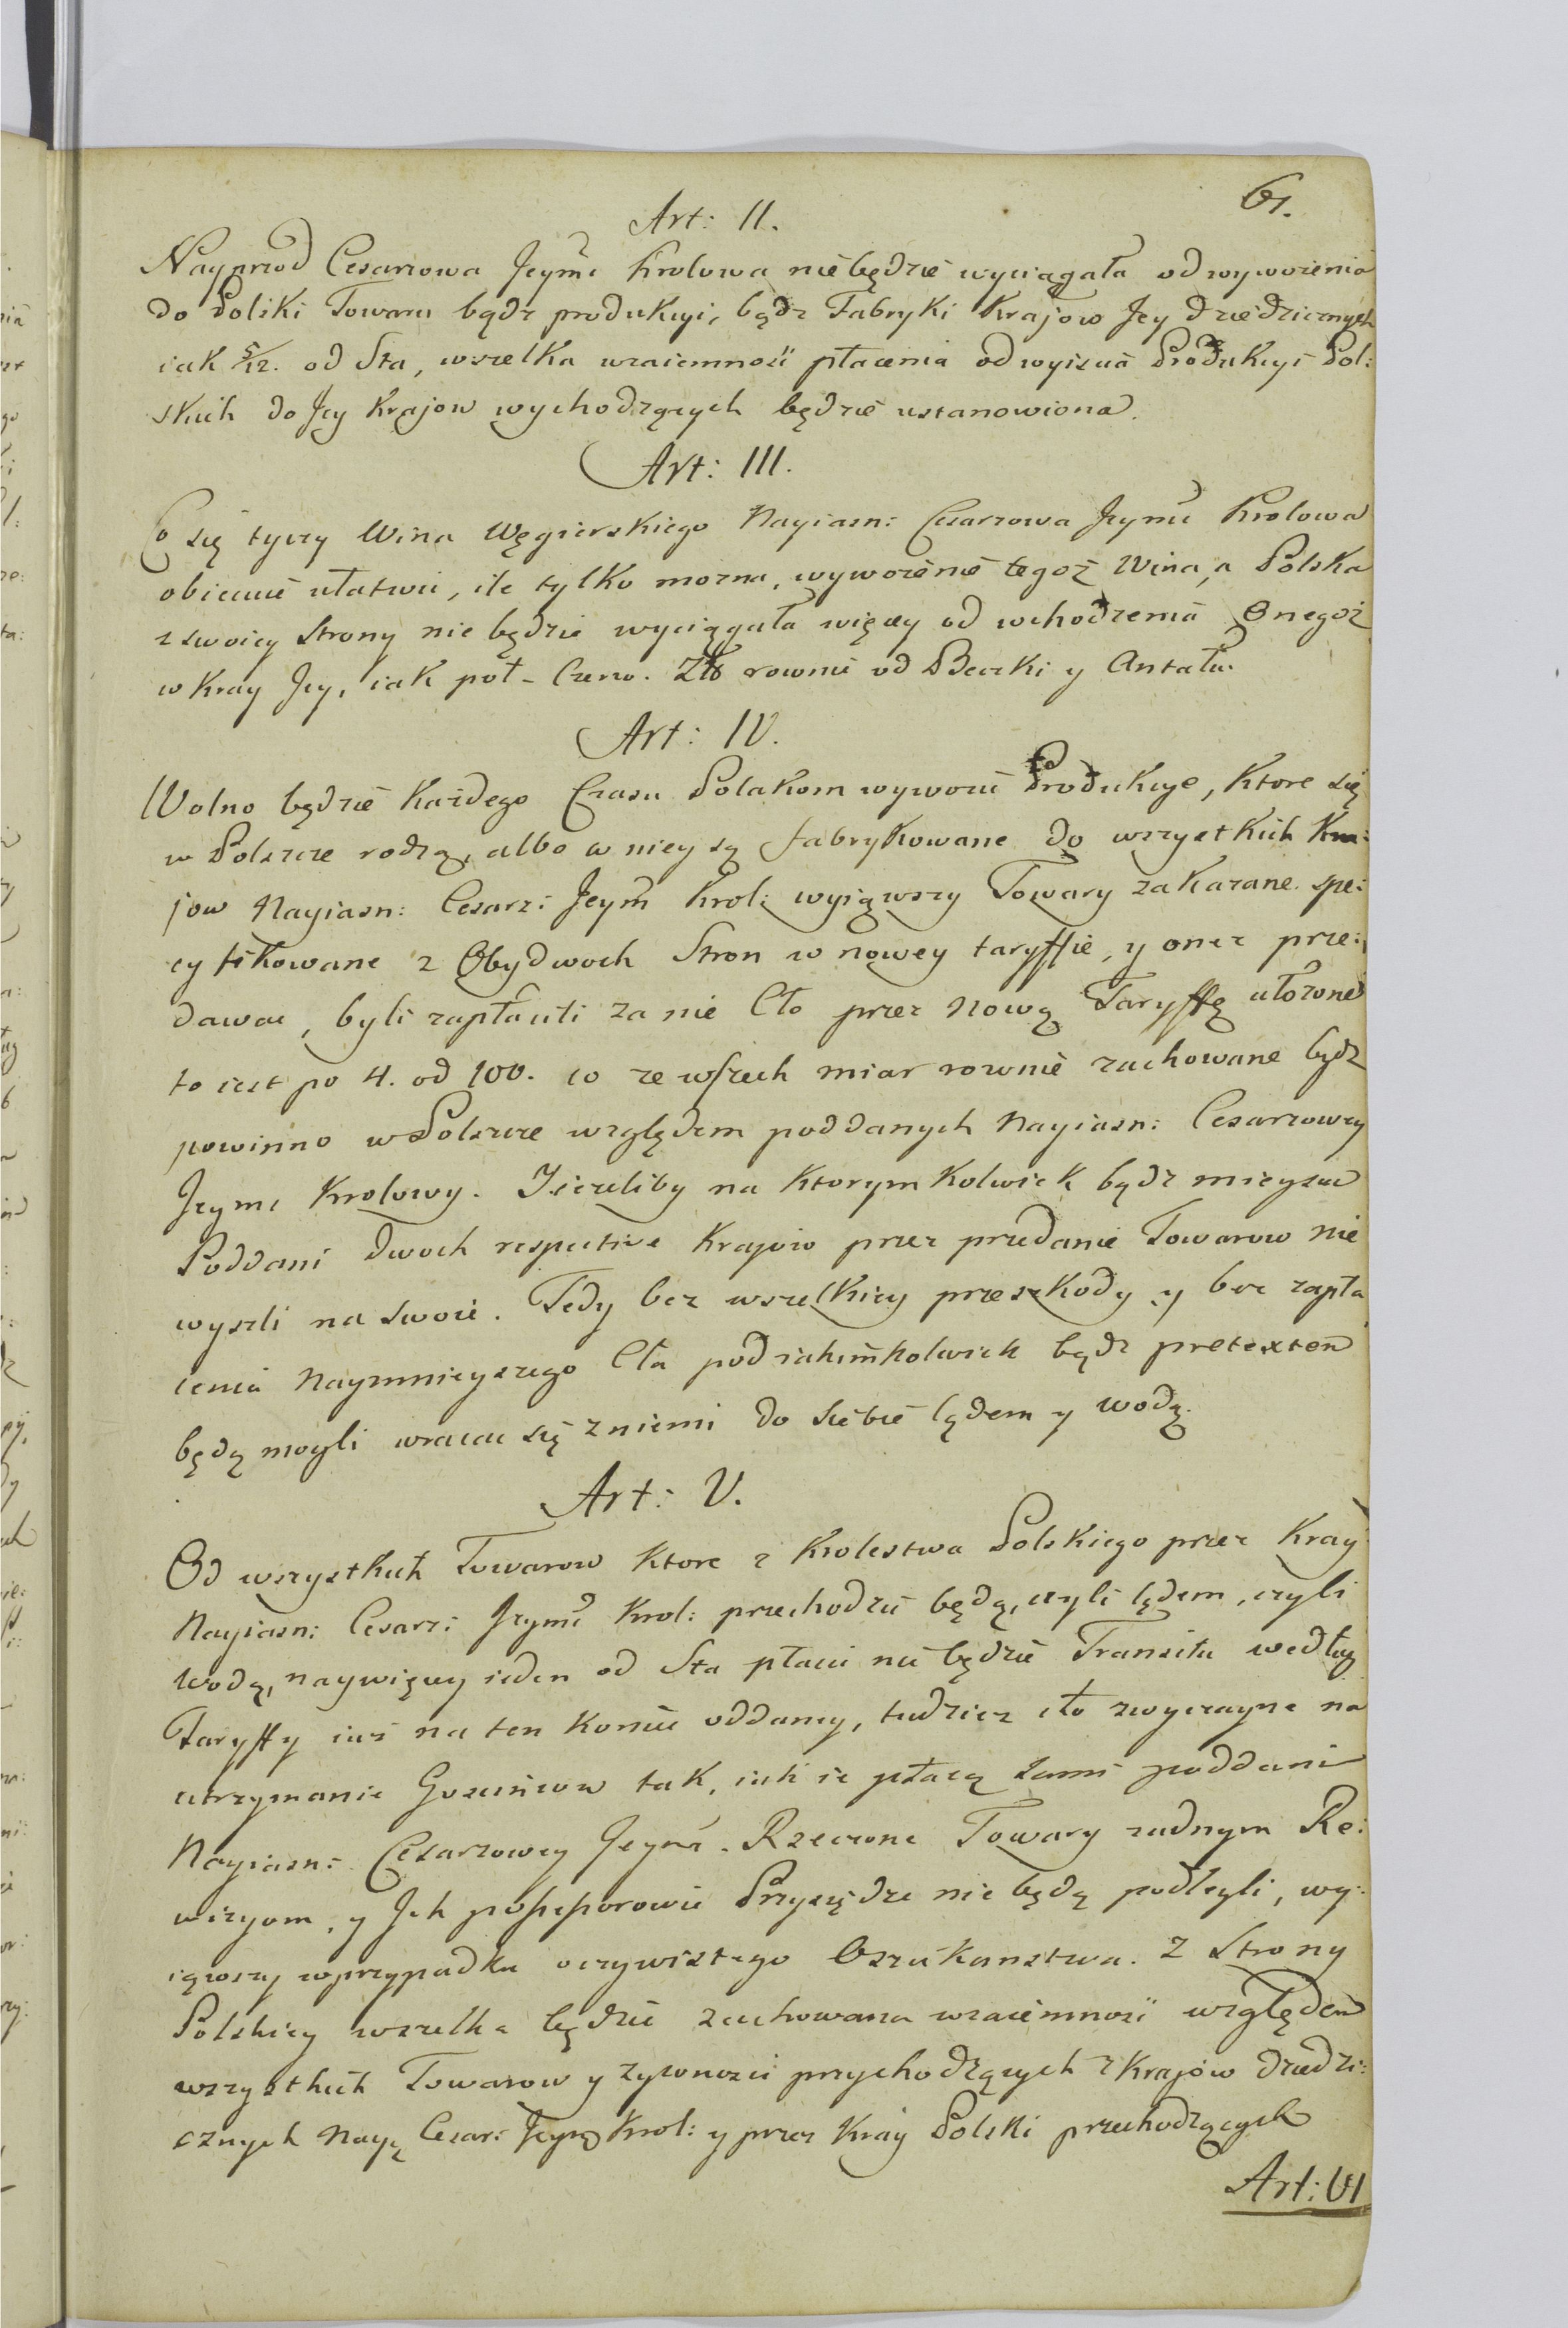 61.
Art: II.
Nayprzod Cesarzowa Jeymć Krolowa nie będzie wyciągała od wywozenia
do Polski Towaru bądz produkcyi, bądz Fabryki Krajow Jey dziedzicznych
iak 5/12. od Sta, wszelka wzaiemność płacenia od wyiscia Produkcyi Pol:
skich do Jey Krajow wychodzących będzie ustanowiona.
Art: III.
Co się tyczy Wina Węgierskiego Nayiasn: Cesarzowa Jeymć Krolowa
obiecuie ułatwić, ile tylko mozna, wywozenie tegoż Wina, a Polska
z swoiey Strony nie będzie wyciągała więcey od wchodzenia Onegoż
w Kray Jey, iak poł-Czerw. Zło rownie od Beczki y Antału.
Art: IV.
Wolno będzie Każdego Czasu Polakom wywozić Produkcye, Ktore się
w Polszcze rodzą, albo w niey są fabrykowane do wszystkich Kra:
jow Nayiasn: Cesarz: Jeym Krol: wyiąwszy Towary zakazane spe:
cyfikowane z Obydwoch Stron w nowey taryffie, y onez prze:
dawac, byli zapłacili za nie Cło przez Nową Taryffę ułozone
to iest po 4. od 100. co ze wszech miar rownie zachowane bydz
powinno w Polszcze względem poddanych Nayiasn: Cesarzowey
Jeymc Krolowy. Jeieliby na Ktorymkolwiek bądz mieyscu
Poddani dwoch respective Krajow przez przedanie Towarow nie
wyszli na swoie. Tedy bez wszelkiey przeszkody y bez zapła
cenia Naymnieyszego Cła pod iakimkolwiek bądz pretextem
będą mogli wracac się z niemi do siebie lądem y wodą.
Art: V.
Od wszystkich Towarow Ktore z Krolestwa Polskiego przez Kray
Nayiasn: Cesarz: Jeymć Krol: przechodzić będą, czyli lądem, czyli
wodą, naywięcey ieden od Sta płacić nie będzie Transitu według
Taryffy iuż na ten Koniec oddaney, tudziez cło zwyczayne na
utrzymanie Goscincow tak, iak ie płacą sami poddani
Nayiasn: Cesarzowey Jeymć. Rzeczone Towary zadnym Re:
wizyom, y Jch possessorowie Przysiędze nie będą podlegli, wy:
iąwszy w przypadku oczywistego Oszukanstwa. Z Strony
Polskiey wszelka będzie zachowana wzaiemność względem
wszystkich Towarow y zywnosci przychodzących z Krajow dziedzi:
cznych Nayi Cesar: Jeym Krol: y przez Kray Polski przechodzących
Art: VI